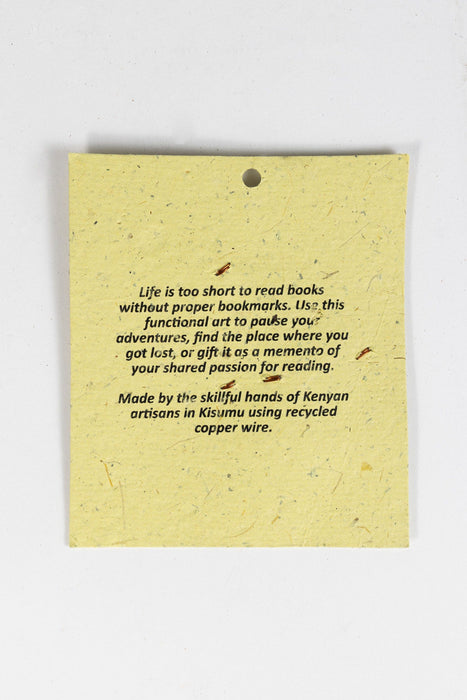 Life is too short to read books
without proper bookmarks. Use this
functional art to pause your
adventures, find the place where you
got lost, or gift it as a memento of
your shared passion for reading.
Made by the skillful hands of Kenyan
artisans in Kisumu using recycled
copper wire.